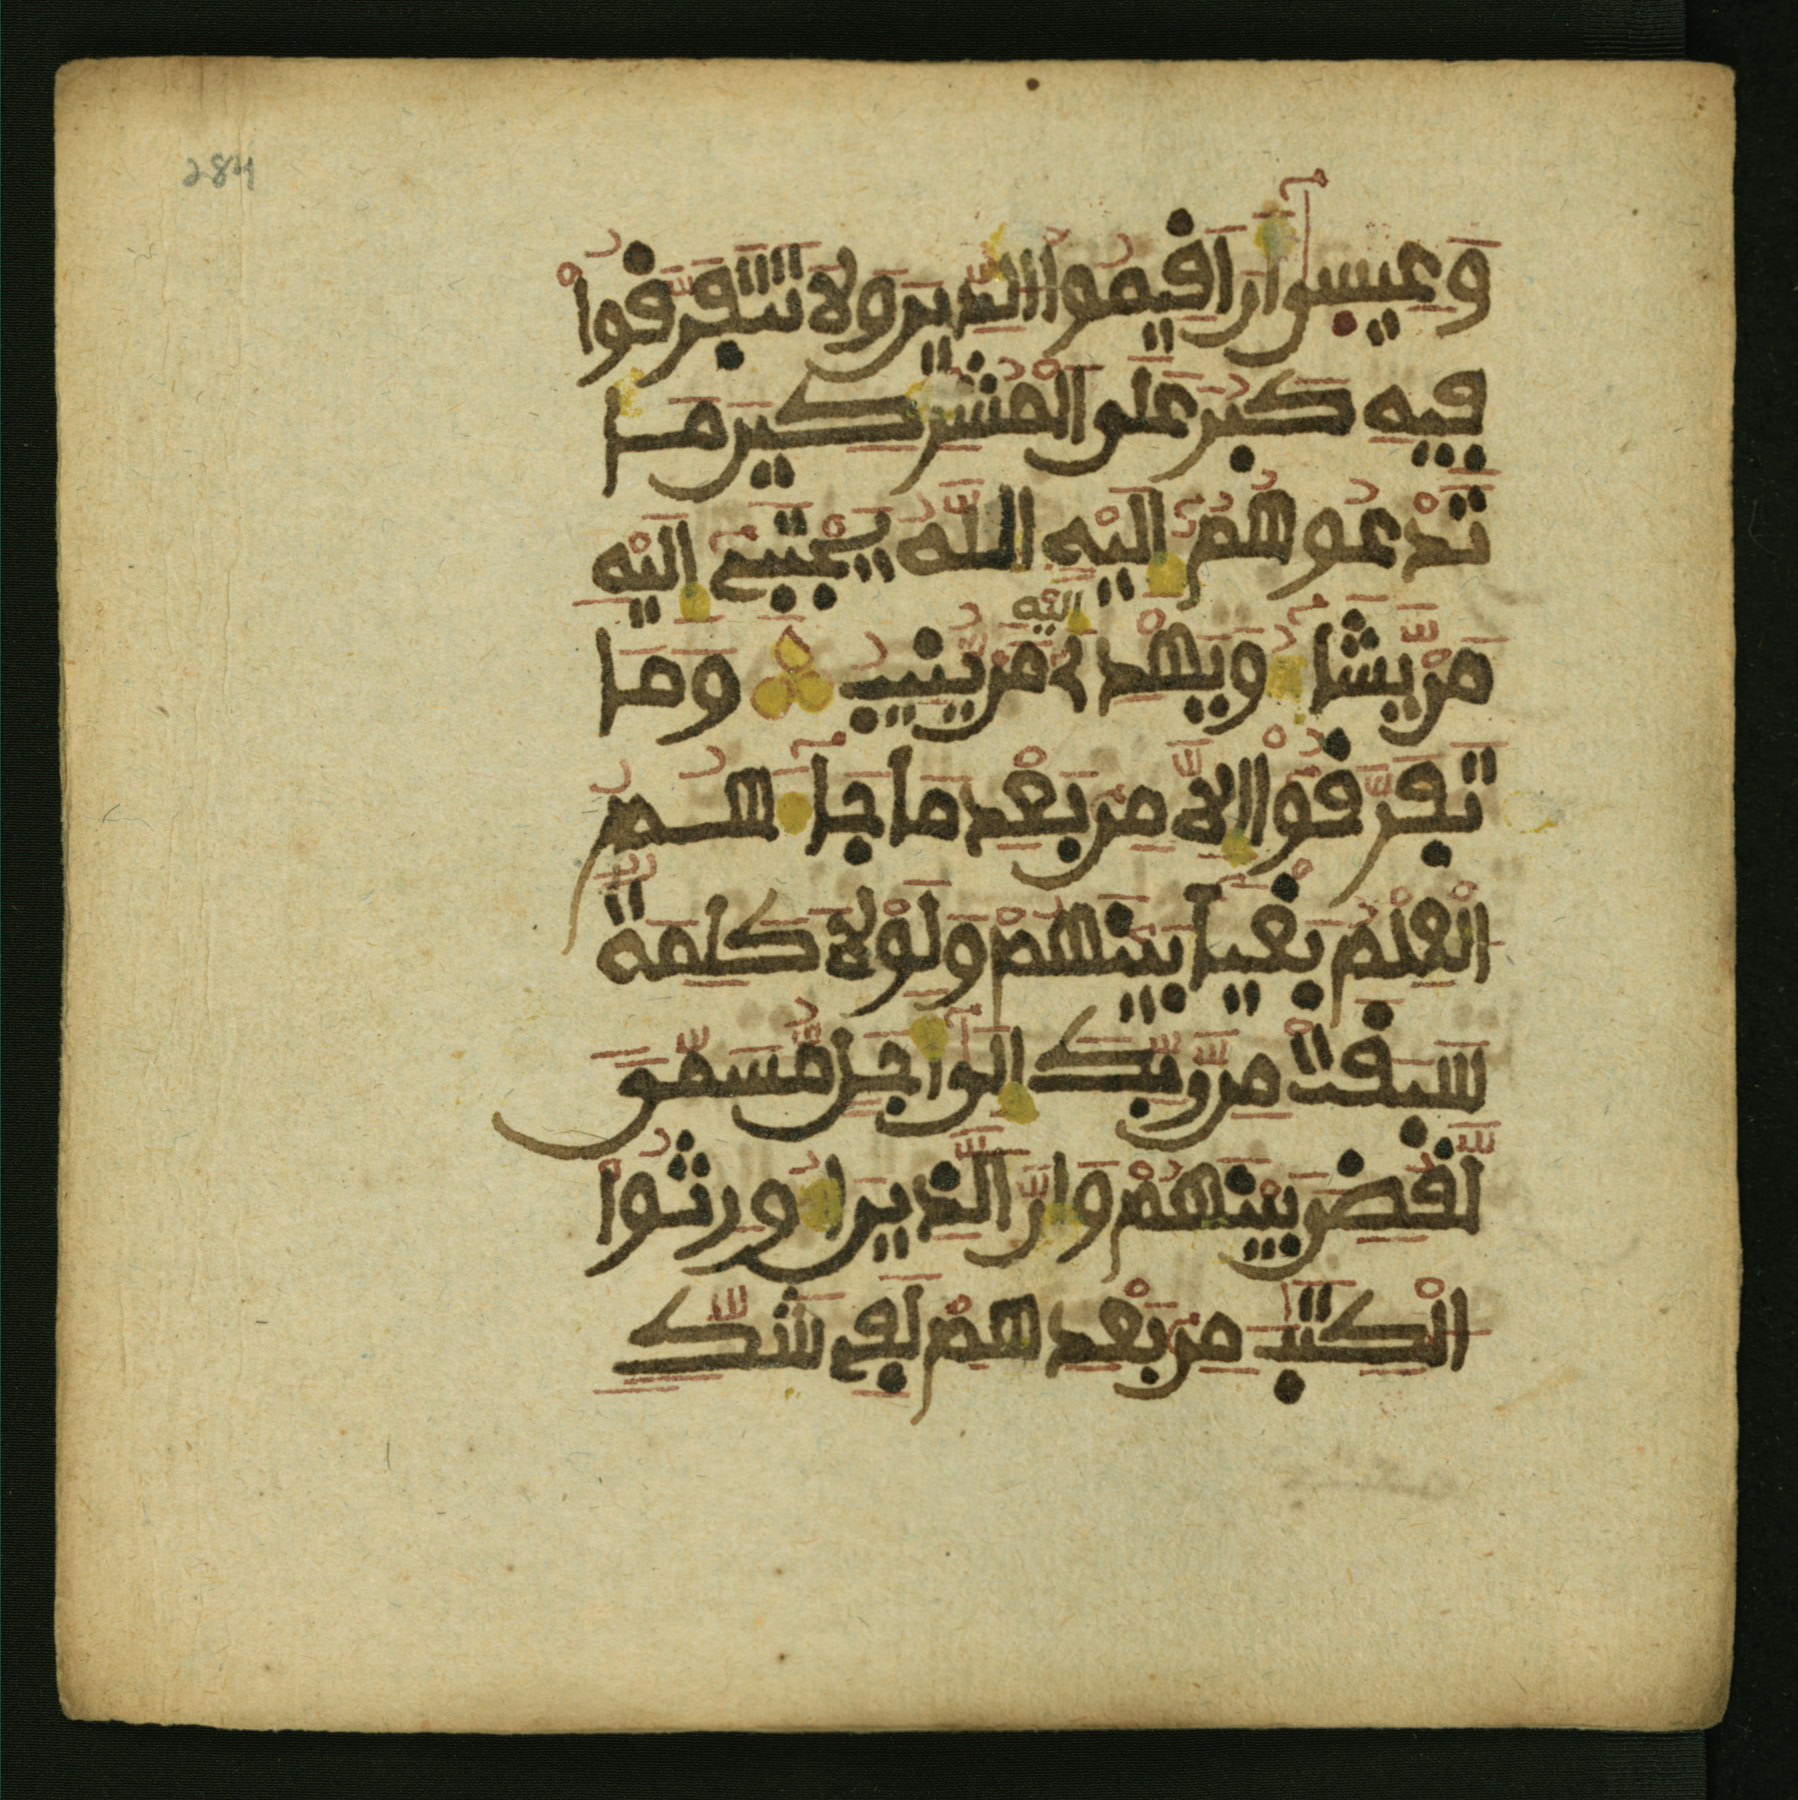 284
وَعِيسىٰٓ أَنَ اَقِيمُوا اُ۬لدِّينَ وَلَا تَتَفَرَّقُواْ
فِيهِ كَبُرَ عَلَى اَ۬لْمُشْرِكِينَ مَا
تَدْعُوهُمُۥٓ إِلَيْهِ اِ۬للَّهُ يَجْتَبِےٓ إِلَيْهِ
مَنْ يَّشَآءُ وَيَهْدِےٓ إِلَيْهِ مَنْ يُّنِيبُ وَمَا
تَفَرَّقُوٓاْ إِلَّا مِنۢ بَعْدِ مَا جَآءَهُمُ
اُ۬لْعِلْمُ بَغْياَۢ بَيْنَهُمْ وَلَوْلَا كَلِمَةٌ
سَبَقَتْ مِن رَّبِّكَ إِلَىٰٓ أَجَلٍ مُّسَمّىً
لَّقُضِيَ بَيْنَهُمْ وَإِنَّ اَ۬لذِينَ أُورِثُواْ
اُ۬لْكِتَٰبَ مِنۢ بَعْدِهِمْ لَفِے شَكٍّ